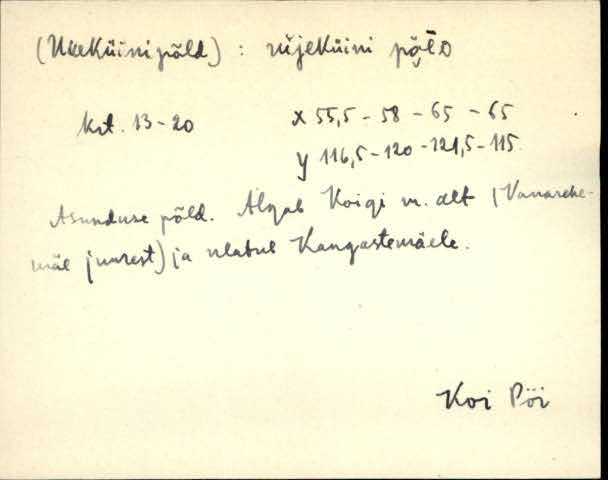 (Uueküini põld) : ṷijeküini põlᴅ
krt. 13-20 x 55,5 - 58 - 65 - 65
y 116,5 - 120 - 121,5 - 115.
Asunduse põld. Algab Koigi m. alt (Vanarehe-
mäe juurest) ja ulatub Kangastemäele.
Koi Pöi